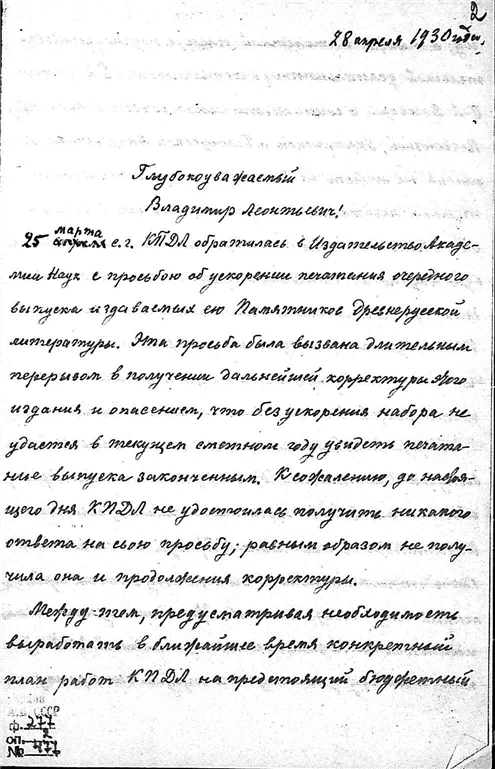 2
28 апреля 1930 года.
Глубокоуважаемый
Владимир Леонтьевич!
марта
25 апреля с.г. КПДЛ обратилась в Издательство Акаде-
мии Наук с просьбою об ускорении печатания очередного
выпуска издаваемых ею Памятников древнерусской
литературы. Эта просьба была вызвана длительным
перерывом в получении дальнейшей корректуры этого
издания и опасением, что без ускорения набора не
удастся в текущем сметном году увидеть печата-
ние выпуска законченным. К сожалению, до настоя-
щего дня КПДЛ не удостоилась получить никакого
ответа на свою просьбу; равным образом не полу-
чила она и продолжения корректуры.
Между тем, предусматривая необходимость
выработать в ближайшее время конкретный
план работ КПДЛ на предстоящий бюджетный
СССР
ф. 277
оп. 2
№